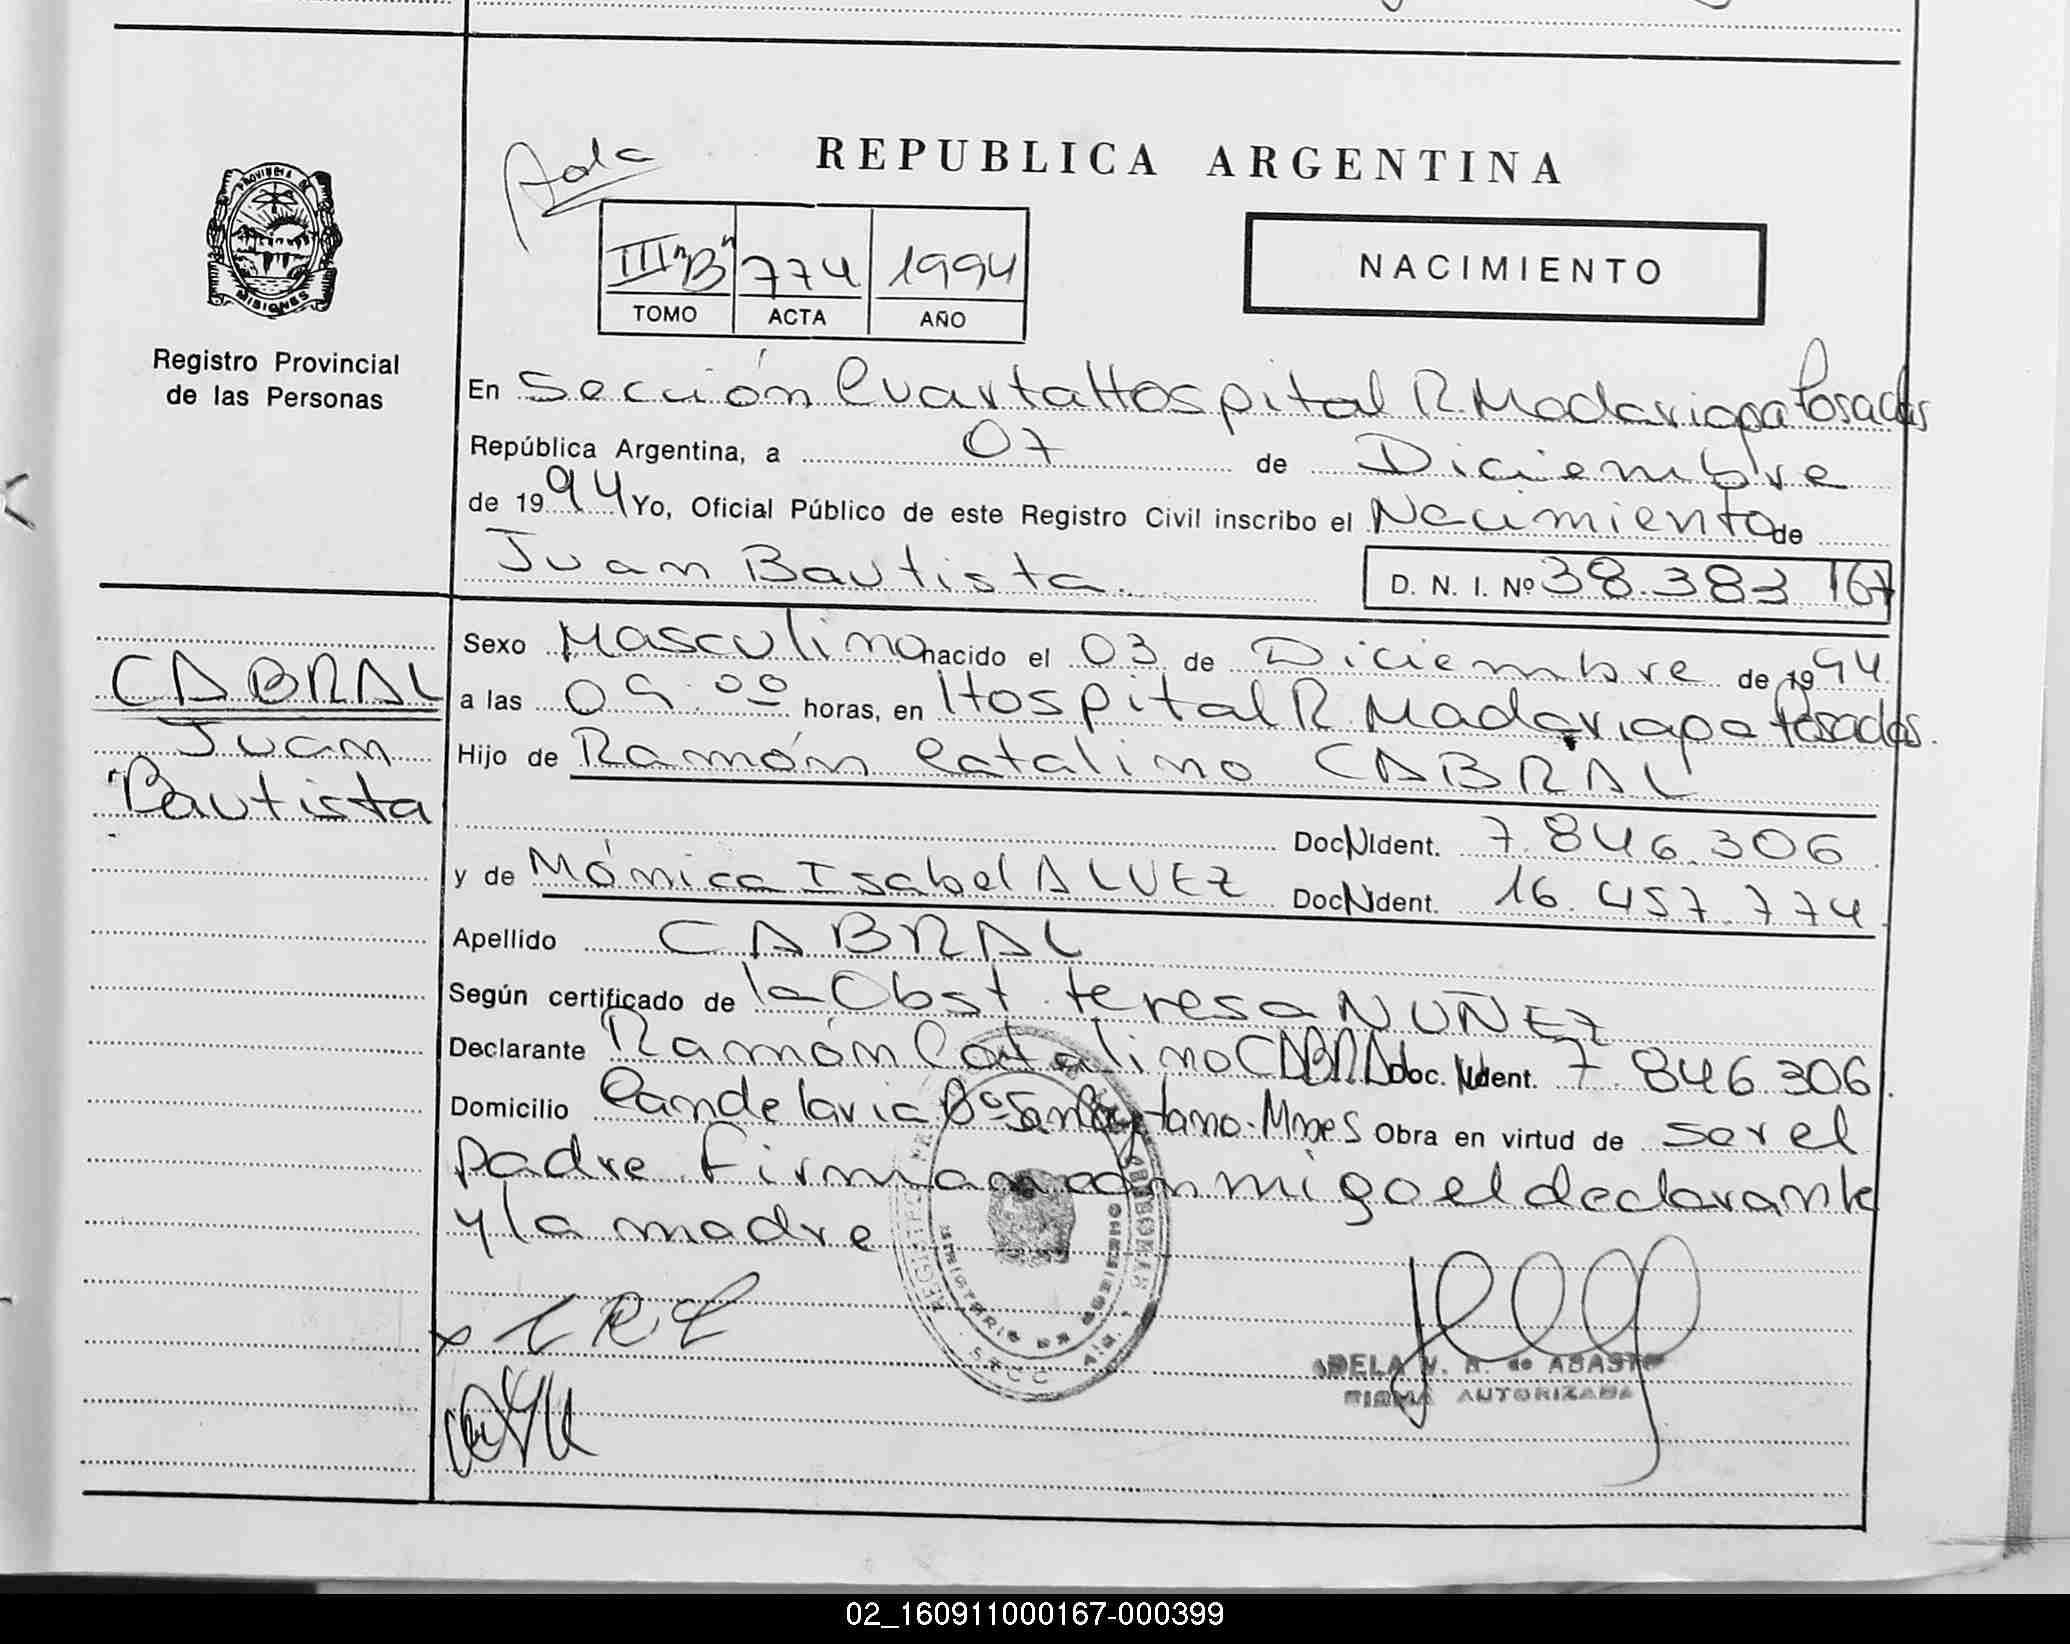 REPUBLICA ARGENTINA
PROVINCIA DE
MISIONES
Registro Provincial
de las Personas
III "B" 774 1994
TOMO ACTA AÑO
NACIMIENTO
En Sección Cuarta Hospital R. Madariaga Posadas
República Argentina, a 07 de Diciembre
de 1994 Yo, Oficial Público de este Registro Civil inscribo el Nacimiento de
Juan Bautista. D. N. I. Nº 38.383.167
CABRAL
Juan
Bautista
Sexo Masculino nacido el 03 de Diciembre de 1994
a las 09:00 horas, en Hospital R. Madariaga Posadas.
Hijo de Ramón Catalino CABRAL
Doc N Ident. 7.846.306
y de Mónica Isabel ALVEZ Doc N Ident. 16.457.774
Apellido CABRAL
Según certificado de la Obst. Teresa NUÑEZ
Declarante Ramón Catalino CABRAL doc. N Ident. 7.846.306.
Domicilio Candelaria Bº San Cayetano. Mnes Obra en virtud de ser el
padre. Firman conmigo el declarante
y la madre
x C R C
ADELA V. R. de ABASTO
FIRMA AUTORIZADA
02_160911000167-000399